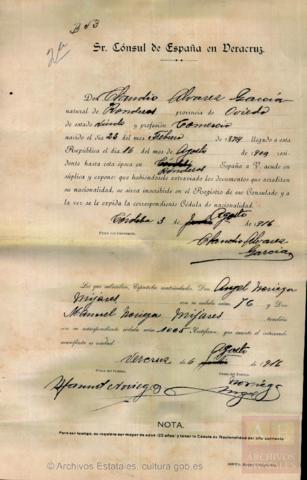 B N 3
Sr. Cónsul de España en Veracruz.
Don Claudio Alvarez García
natural de provincia de Oviedo
de estado y profesión Comercio
nacido el día 23 del mes Febrero 18 llegado a esta
República el día 16 del mes de Agosto de 1909
dente hasta esta época en España a V. acude en
súplica y expone que habiéndosele extraviado los documentos que acrediten
su nacionalidad, se sirva inscribirle en el Registro de ese Consulado y a
la vez se le expida la correspondiente Cédula de nacionalidad.
Agosto
Córdoba 3 de 1916
Claudio Alvarez
García
Los que subscriben, Españoles matriculados, Don Angel Noriega
Mijares con su cédula núm. 76 y Don
Manuel Noriega Mijares también
con su correspondiente cédula núm. 1005 Certifican que cuanto el interesado
manifiesta es verdad.
Agosto
Veracruz de 1916
Manuel Noriega
Angel Noriega
NOTA.
Para ser testigo, se requiere ser mayor de edad (25 años) y tener la Cédula de Nacionalidad del año corriente
AE
ARCHIVOS
© Archivos Estatales, cultura.gob.es